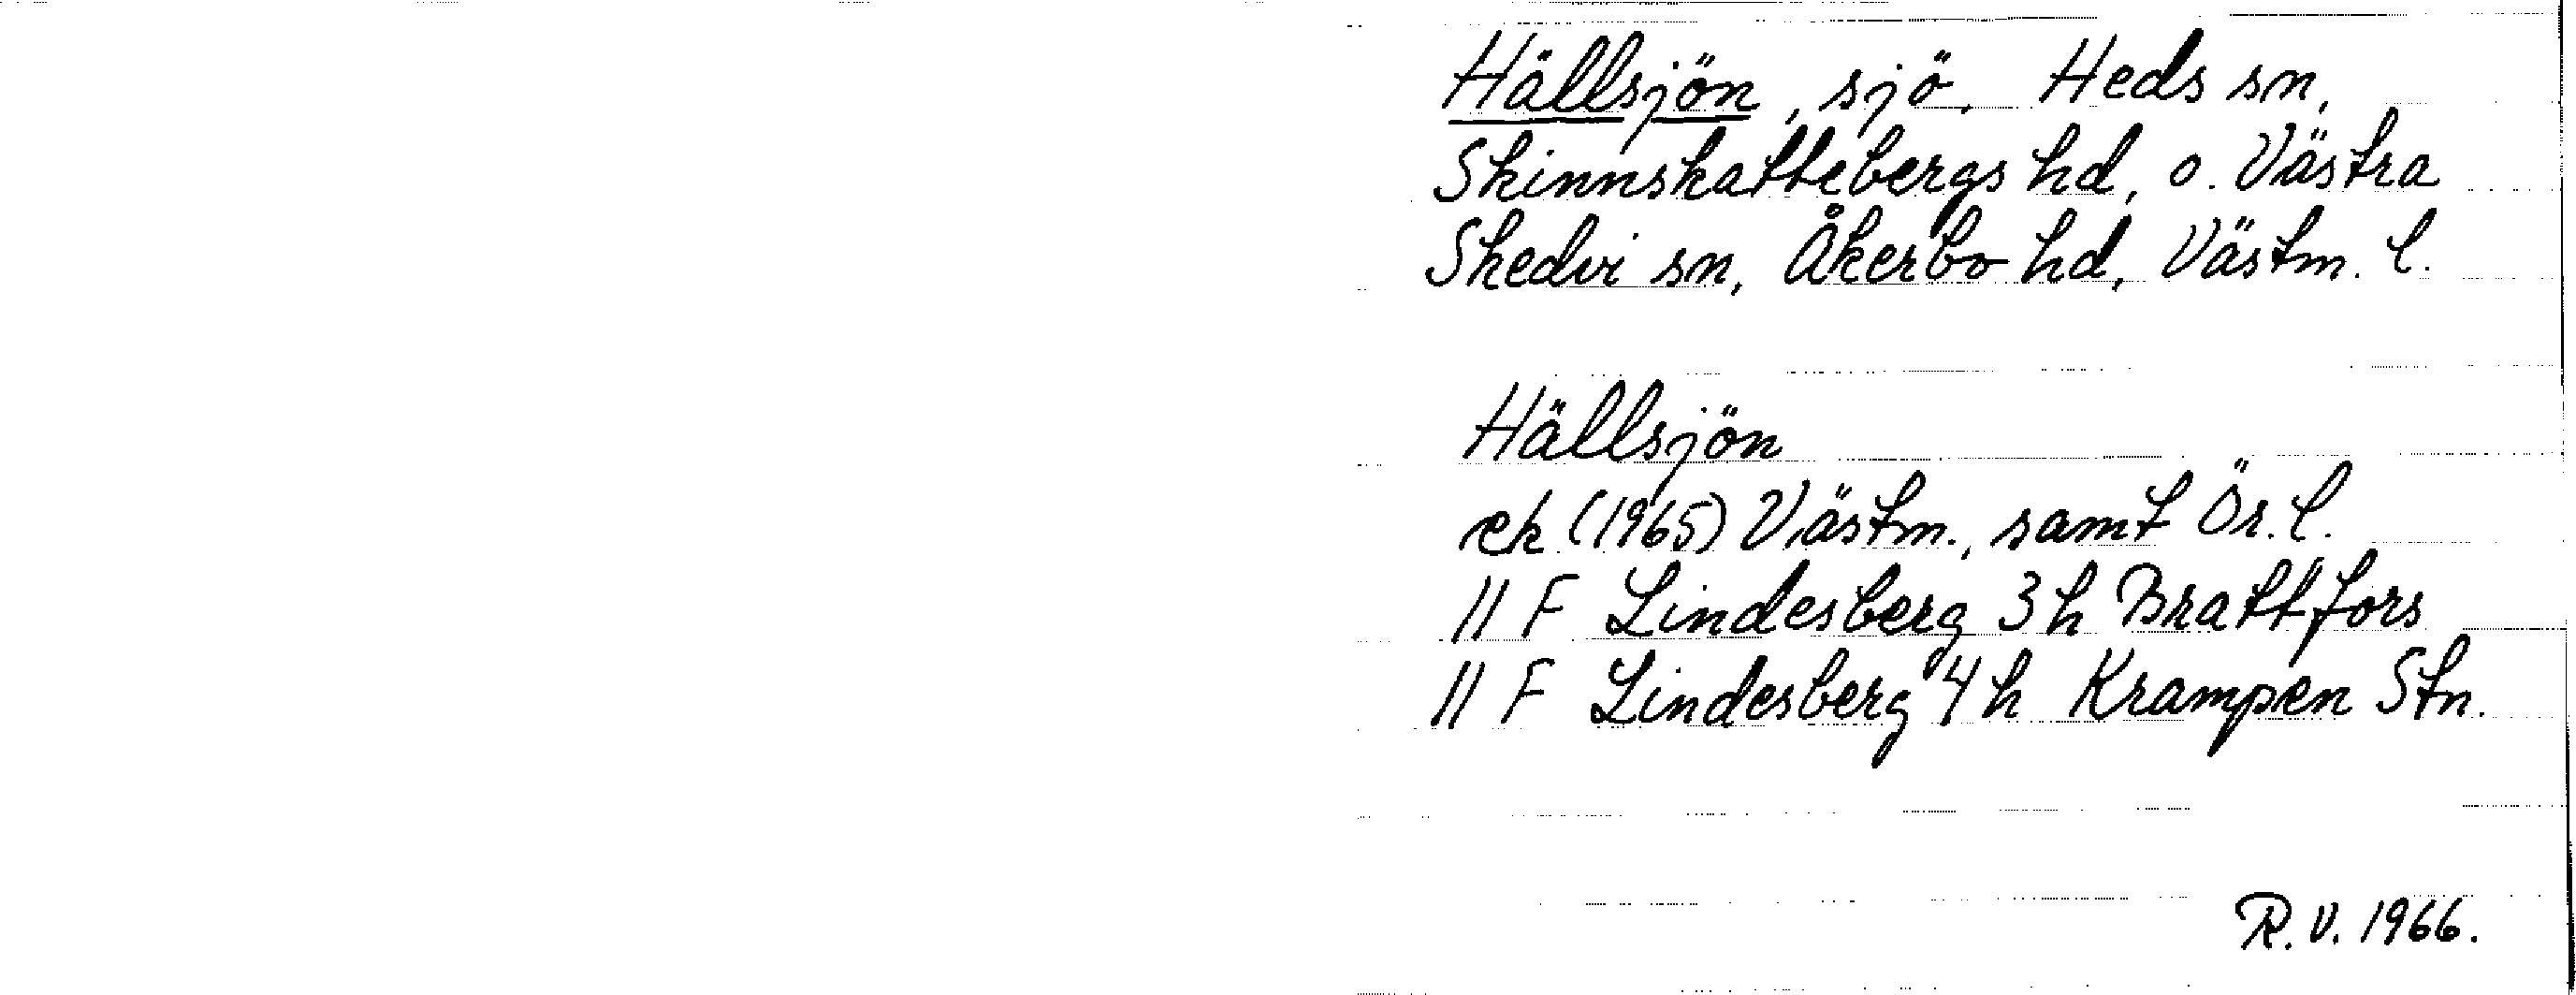 Hällsjön, sjö, Heds sn,
Skinnskattebergs hd, o. Västra
Skedvi sn, Åkerbo hd, Västm. l.
Hällsjön
ek (1965) Västm., samt Ör. l.
11 F Lindesberg 3 h Brattfors
11 F Lindesberg 4 h Krampen Stn.
R.V. 1966.